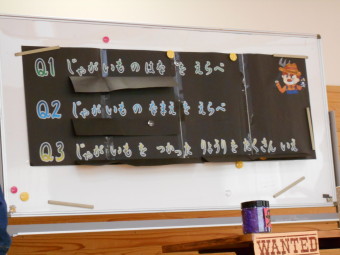 Q1 じゃがいものはなをえらべ
Q2 じゃがいものなまえをえらべ
Q3 じゃがいもをつかったりょうりをたくさんいえ
WANTED